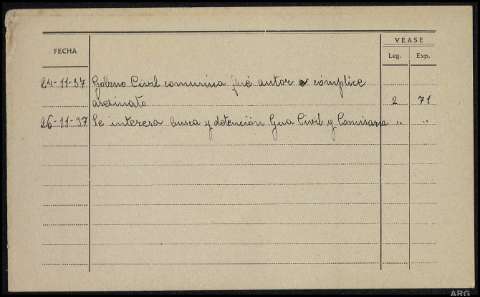 FECHA
VEASE
Leg. Exp.
24-11-37 Gobno Civil comunica fué autor o complice
asesinato 2 71
26-11-37 Se interesa busca y detención Gua Civil y Comisaria " "
ARG